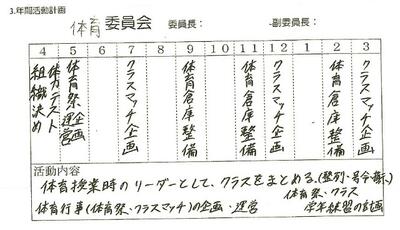 3.年間活動計画
体育委員会
委員長：
副委員長：
4 5 6 7 8 9 10 11 12 1 2 3
組織決め
体力テスト
体育祭企画運営
クラスマッチ企画
体育倉庫整備
体育倉庫整備
クラスマッチ企画
体育倉庫整備
クラスマッチ企画
活動内容
体育授業時のリーダーとして、クラスをまとめる。(整列・号令・
体育祭・クラス
体育行事(体育祭・クラスマッチ)の企画・運営
学年練習の計画